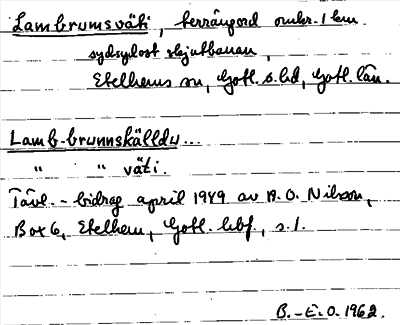 Lambrumsväti, terrängord omkr. 1 km.
sydsydost skjutbanan,
Etelhems sn, Gotl. s. hd, Gotl. län.
Lamb-brunnskälldu...
" " väti.
Tävl.-bidrag april 1949 av A. O. Nilsson,
Box 6, Etelhem, Gotl. hbf., s. 1.
B.-E. O. 1962.